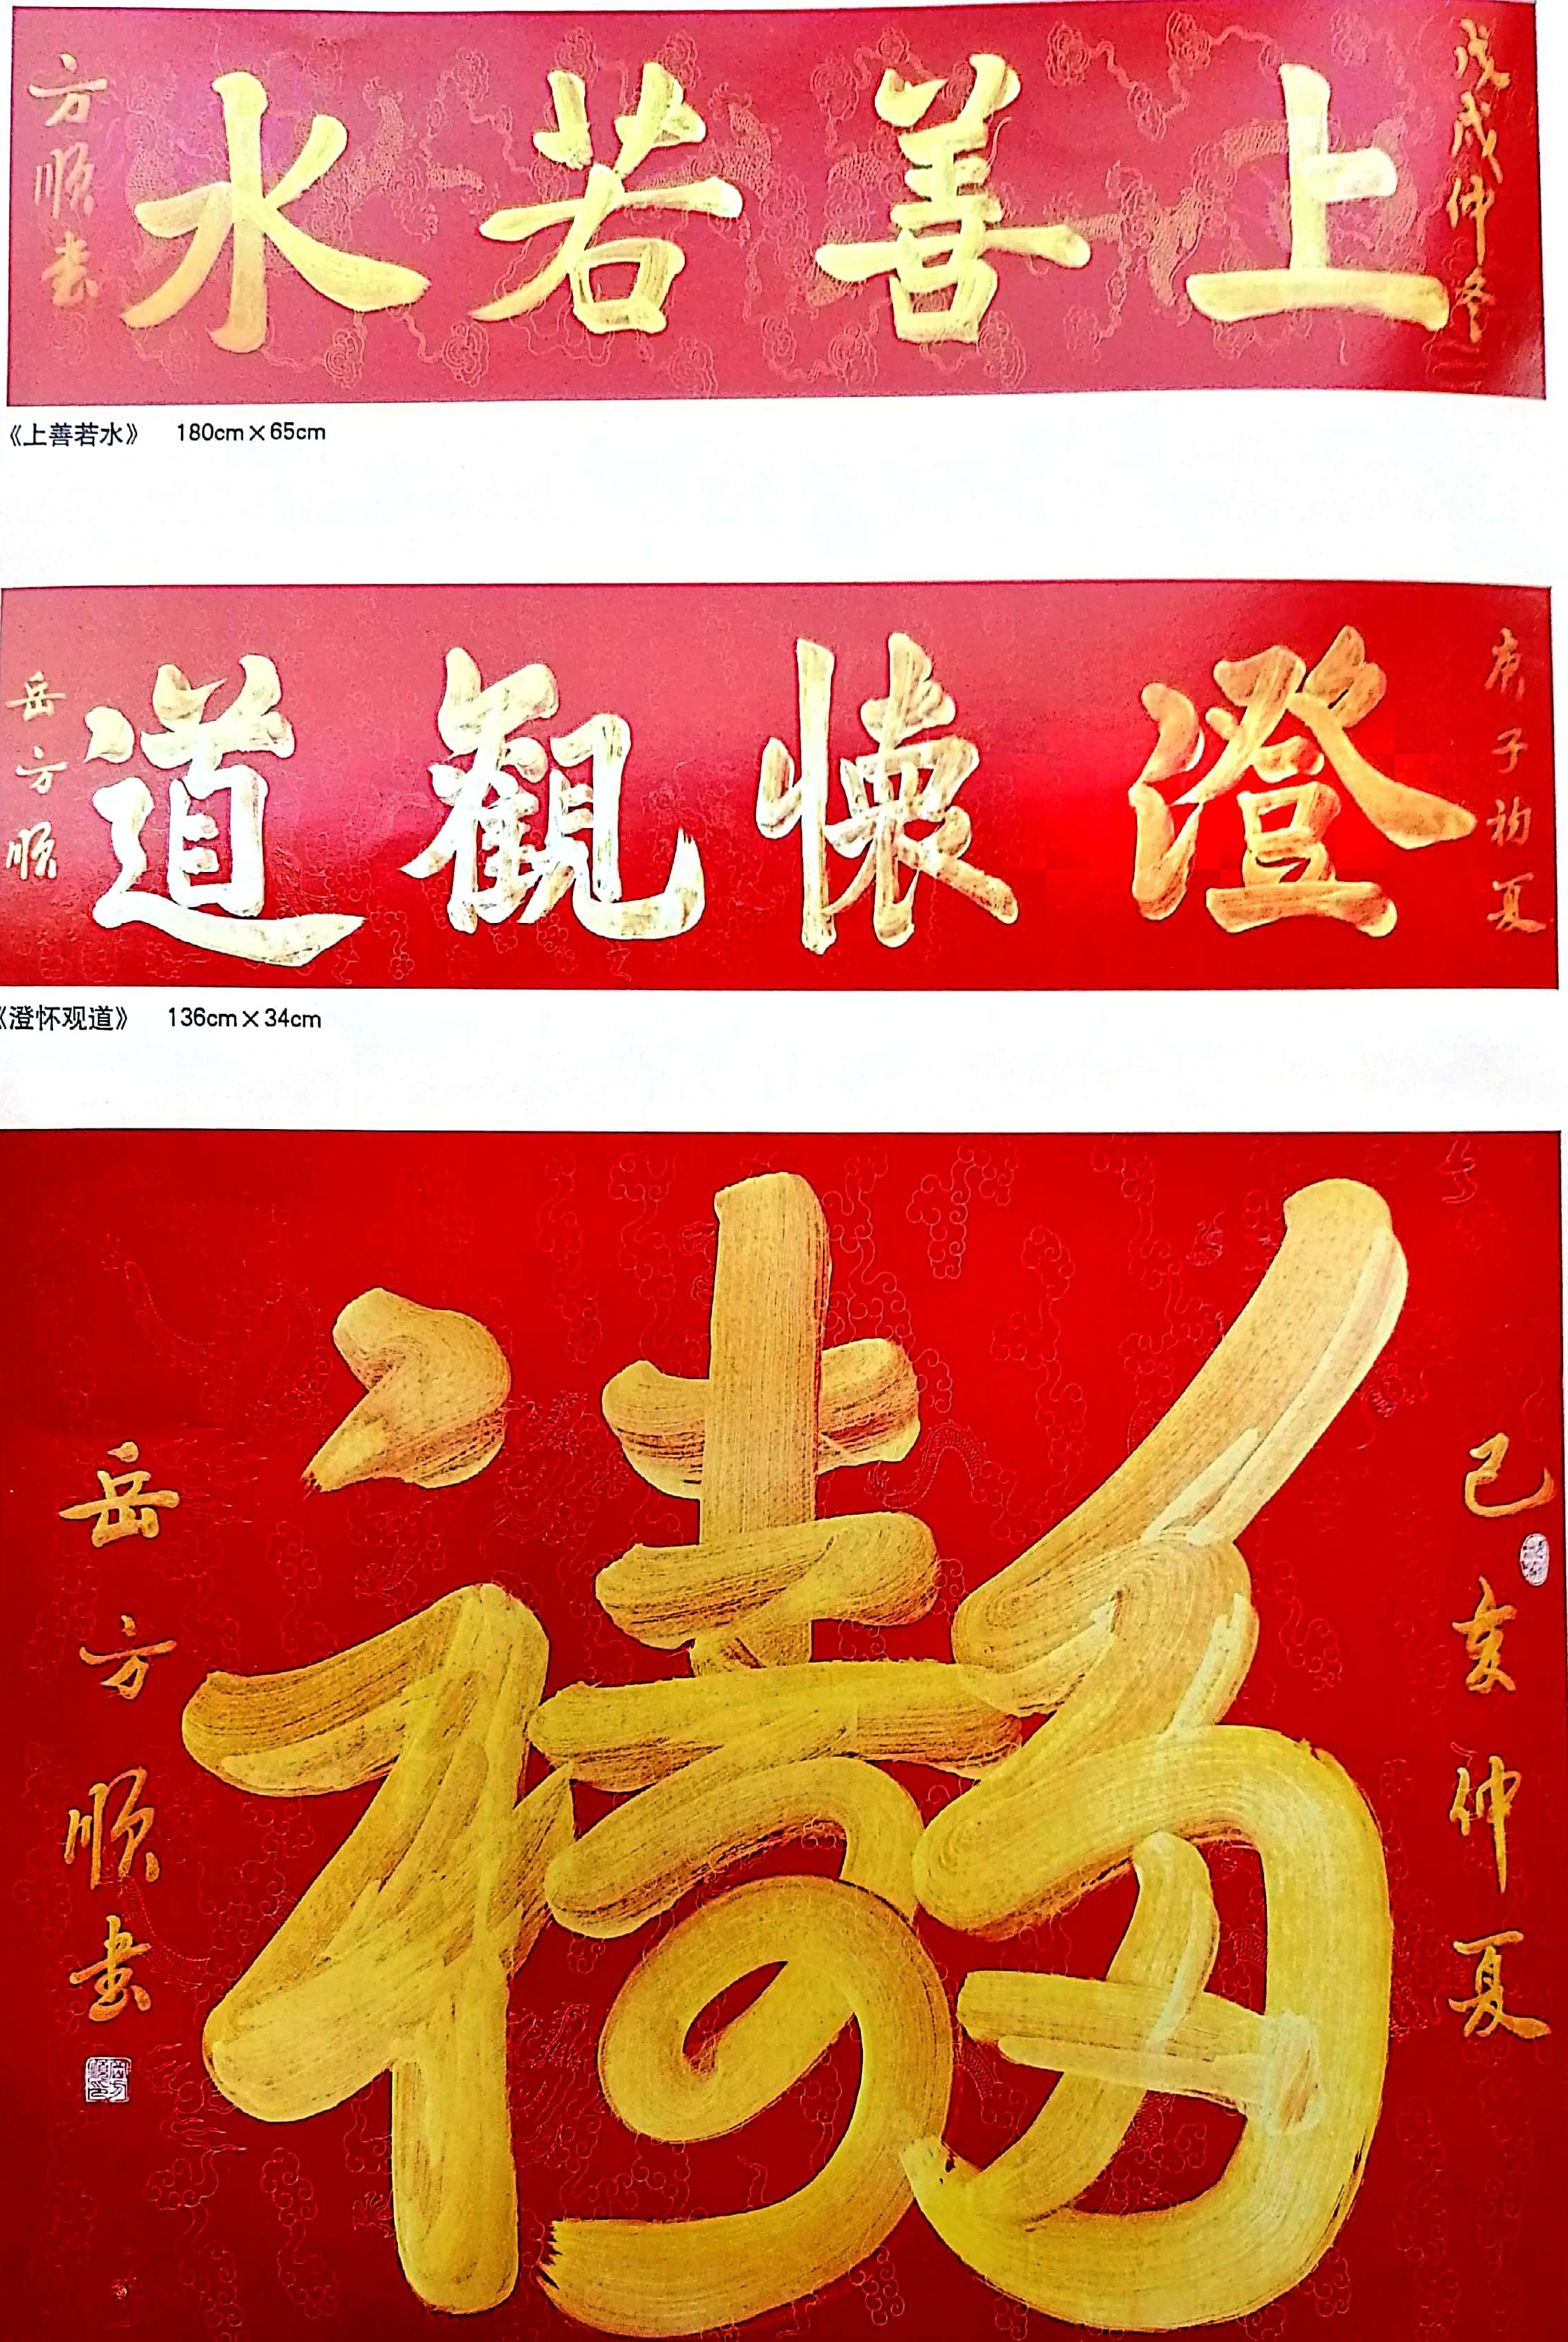 戊戌仲冬
上善若水
方順書
《上善若水》 180cm×65cm
庚子初夏
澄懷觀道
岳方順
《澄怀观道》 136cm×34cm
己亥仲夏
岳方順書